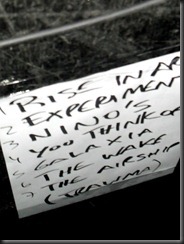 1 RISE IN AR
2 EXPERIMENT
3 NINO IS
4 YOU THINK OF
5 GALAXIA
6 THE WAKE
7 THE AIRSHIP
(TRAUMA)